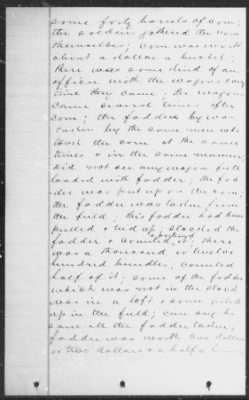 some forty barrels of corn
the soldiers gathered the corn
themselves; corn was worth
about a dollar a bushel;
there was some kind of an
officer with the wagons every
time they came; the wagons
came several times after
corn; the fodder by was
taken by the same men who
took the corn at the same
times & in the same manner
did not see any wagons first
loaded with fodder; the fod
der was put up on the corn
the fodder was taken from
the field; this fodder had been
pulled & tied up; stacked the
fodder & counted it; there
was a thousand or twelve
hundred bundles; counted
half of it; some of the fodder
which was not in the stack
was in a loft & some piled
up in the field; can say he
saw all the fodder taken,
fodder was worth one dollar
or two dollars & a half a hun